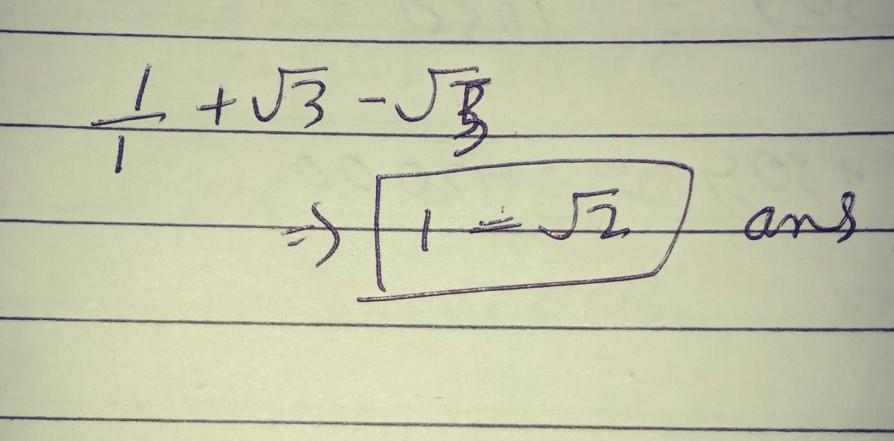 1/1 + √3 - √
⇒ 1 - √2 ans